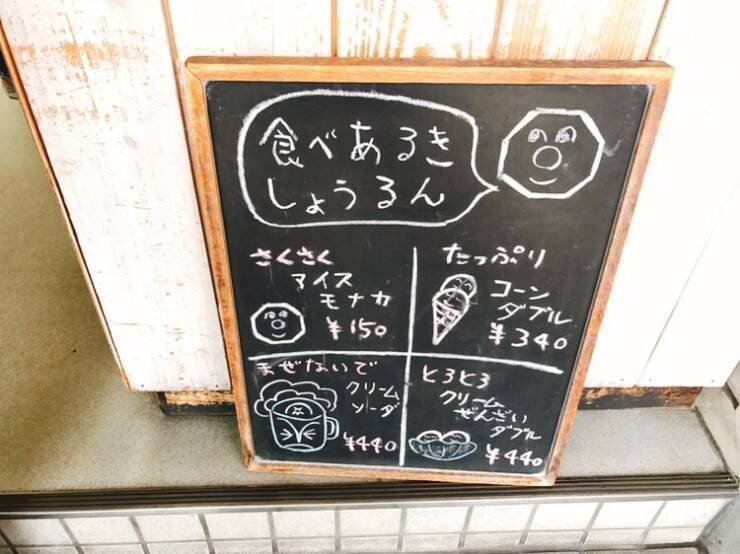 食べあるき
しょうるん
さくさく
アイス
モナカ
¥150
たっぷり
コーン
ダブル
¥340
まぜないで
クリーム
ソーダ
¥440
とろとろ
クリーム
ぜんざい
ダブル
¥440